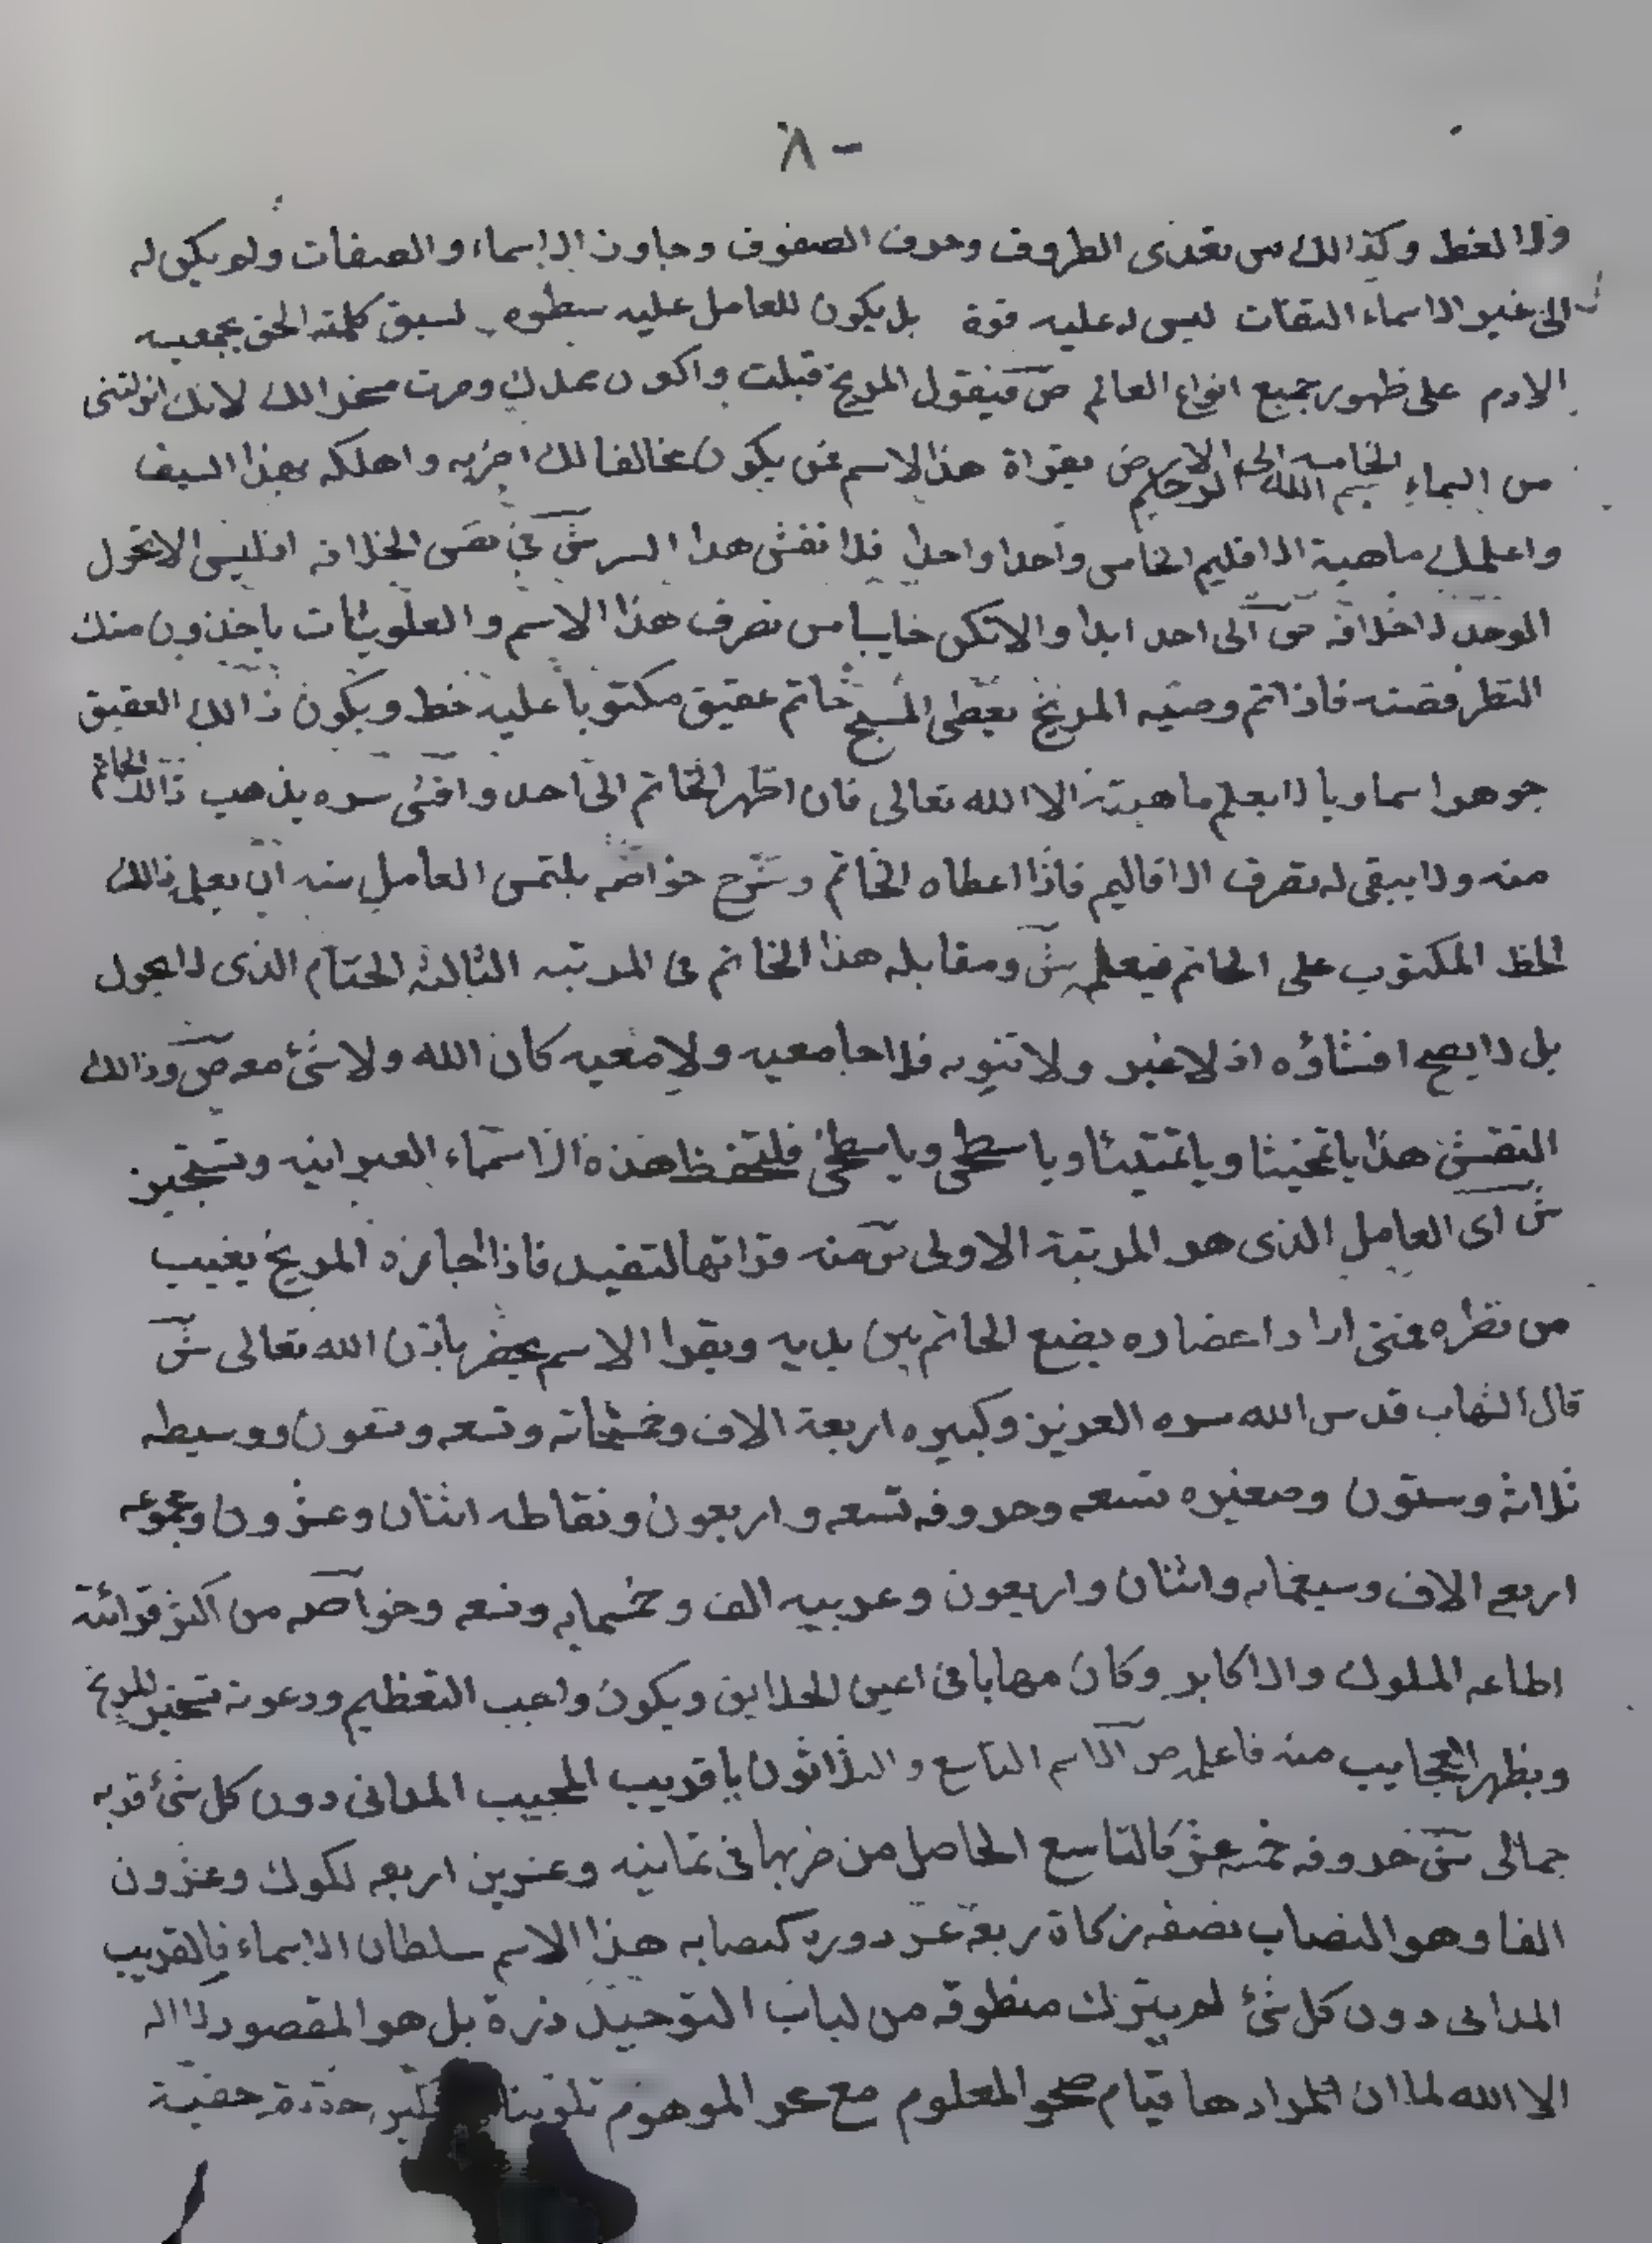 ٨ -
ولا لفظ وكذالك من تعدى الظروف وحرف الصفوف وجاوز الاسماء والصفات ولم يكن له
الى غير الاسماء التفات ليس له عليه قوة بل يكون للعامل عليه سطوه لسبق كلمته الحق
الادم على ظهور جميع انواع العالم ص فيقول المريخ قبلت واكون عدك وصرت لانك انزلتنى
من السماء الخامسه الى الارض بقراة هذا الاسم فمن يكون مخالفا لك اضربه واهلكه بهذا السيف
بسم الله الرحيم
واعلمك ماهية الاقليم الخامس واحدا واحدا فلا تفش هذا السر ش فى نفس الخلافه افليس الا تحول
الموحد لاخلافه ص الى احد ابدا والا تكن خايبا من تصرف هذا الاسم والعلويات ياخذون منك
النظر فصنه فاذا تم وصيه المريخ يعطى المسبح خاتم عقيق مكتوبا عليه خط ويكون ذالك العقيق
جوهرا سماويا لا يعلم ماهيته الا الله تعالى فان اظهر الخاتم الى احد وافشى سره يذهب ذالك الخاتم
منه ولا يبقى له تصرف الاقاليم فاذا اعطاه الخاتم وشرح خواصه يلتمس العامل منه ان يعلم ذالك
الخط المكتوب على الخاتم فيعلمه ش ومقابله هذا الخاتم فى المرتبه الثالثه الختام الذى لا يحول
بل لا يصح افشاؤه اذ لا غير ولا تنويه فلا جامعيه ولا معيه كان الله ولا شئ معه ص وذالك
النقش هذا ياتمخيثا وياتمتيثا وياسطحى وياسطحى فلتحفظ هذه الاسماء العبرانيه وتستجيز
ش اى العامل الذى هو المرتبة الاولى ش منه قراتها لتفيد فاذا اجازه المريخ يغيب
من نظره فمتى اراد احضاره يضع الخاتم بين يديه ويقرا الاسم يحضر باذن الله تعالى ش
قال الشهاب قدس الله سره العزيز وكبيره اربعة الاف وخمسمائه وتسعه وتسعون ووسيطه
ثلاثة وستون وصغيره تسعه وحروفه تسعه واربعون ونقاطه اثنان وعشرون ومجموعه
اربع الاف وسبعمايه واثنان واربعون وعربيه الف وخمسمايه وتسعه وخواصه من اكثر قرائته
اطاعه الملوك والاكابر وكان مهابا فى اعين الخلايق ويكون واجب التعظيم ودعوته تسخير المريخ
ويظهر العجايب منه فاعلمه ص الاسم التاسع والثلاثون يا قريب المجيب المدانى دون كل شئ قربه
جمالى ش حروفه خمسه عشر كالتاسع الحاصل من ضربها فى ثمانيه وعشرين اربعه لكوك وعشرون
الفا وهو النصاب نصفه زكاة ربعة عشر دوره كنصابه هذا الاسم سلطان الاسماء فالقريب
المدانى دون كل شئ لم يترك منطوقه من لباب التوحيد ذرة بل هو المقصود لا اله
الا الله لما ان المراد ها قيام صحو المعلوم مع محو الموهوم تلوينا حقية